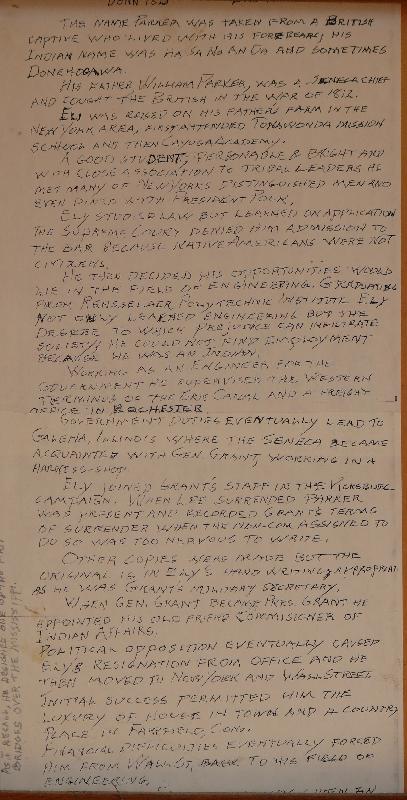 THE NAME PARKER WAS TAKEN FROM A BRITISH
CAPTIVE WHO LIVED WITH HIS FOREBEARS, HIS
INDIAN NAME WAS HA SA NO AN DA AND SOMETIMES
DONEHOGAWA.
HIS FATHER WILLIAM PARKER, WAS A SENECA CHIEF
AND FOUGHT THE BRITISH IN THE WAR OF 1812.
ELY WAS RAISED ON HIS FATHER'S FARM IN THE
NEW YORK AREA, FIRST ATTENDED TONAWONDA MISSION
SCHOOL AND THEN CAYUGA ACADEMY.
A GOOD STUDENT, PERSONABLE & BRIGHT AND
WITH CLOSE ASSOCIATION TO TRIBAL LEADERS HE
MET MANY OF NEW YORKS DISTINGUISHED MEN AND
EVEN DINED WITH PRESIDENT POLK.
ELY STUDIED LAW BUT LEARNED ON APPLICATION
THE SUPREME COURT DENIED HIM ADMISSION TO
THE BAR BECAUSE NATIVE AMERICANS WERE NOT
CITIZENS.
HE THEN DECIDED HIS OPPORTUNITIES WOULD
LIE IN THE FIELD OF ENGINEERING. GRADUATING
FROM RENSSELAER POLYTECHNIC INSTITUTE ELY
NOT ONLY LEARNED ENGINEERING BUT THE
DEGREE TO WHICH PREJUDICE CAN INFILTRATE
SOCIETY. HE COULD NOT FIND EMPLOYMENT
BECAUSE HE WAS AN INDIAN.
WORKING AS AN ENGINEER FOR THE
GOVERNMENT HE SUPERVISED THE WESTERN
TERMINUS OF THE ERIE CANAL AND A FREIGHT
OFFICE IN ROCHESTER
GOVERNMENT DUTIES EVENTUALLY LEAD TO
GALENA, ILLINOIS WHERE THE SENECA BECAME
ACQUAINTED WITH GEN GRANT, WORKING IN A
HARNESS-SHOP.
ELY JOINED GRANT'S STAFF IN THE VICKSBURG
CAMPAIGN. WHEN LEE SURRENDED PARKER
WAS PRESENT AND RECORDED GRANT'S TERMS
OF SURRENDER WHEN THE NON-COM ASSIGNED TO
DO SO WAS TOO NERVOUS TO WRITE.
OTHER COPIES WERE MADE BUT THE
ORIGINAL IS IN ELY'S HAND WRITING
AS HE WAS GRANT'S MILITARY SECRETARY.
WHEN GEN. GRANT BECAME PRES. GRANT HE
APPOINTED HIS OLD FRIEND COMMISSIONER OF
INDIAN AFFAIRS.
POLITICAL OPPOSITION EVENTUALLY CAUSED
ELYS RESIGNATION FROM OFFICE AND HE
THEN MOVED TO NEW YORK AND WALL STREET
INITIAL SUCCESS PERMITTED HIM THE
LUXURY OF HOUSE IN TOWN AND A COUNTRY
PLACE IN FAIRFIELD, CONN.
FINANCIAL DIFFICULTIES EVENTUALLY FORCED
HIM FROM WALL ST. BACK TO HIS FIELD OF
ENGINEERING.
AS I RECALL, HE DESIGNED ONE OF THE FIRST
BRIDGES OVER THE MISSISSIPPI.